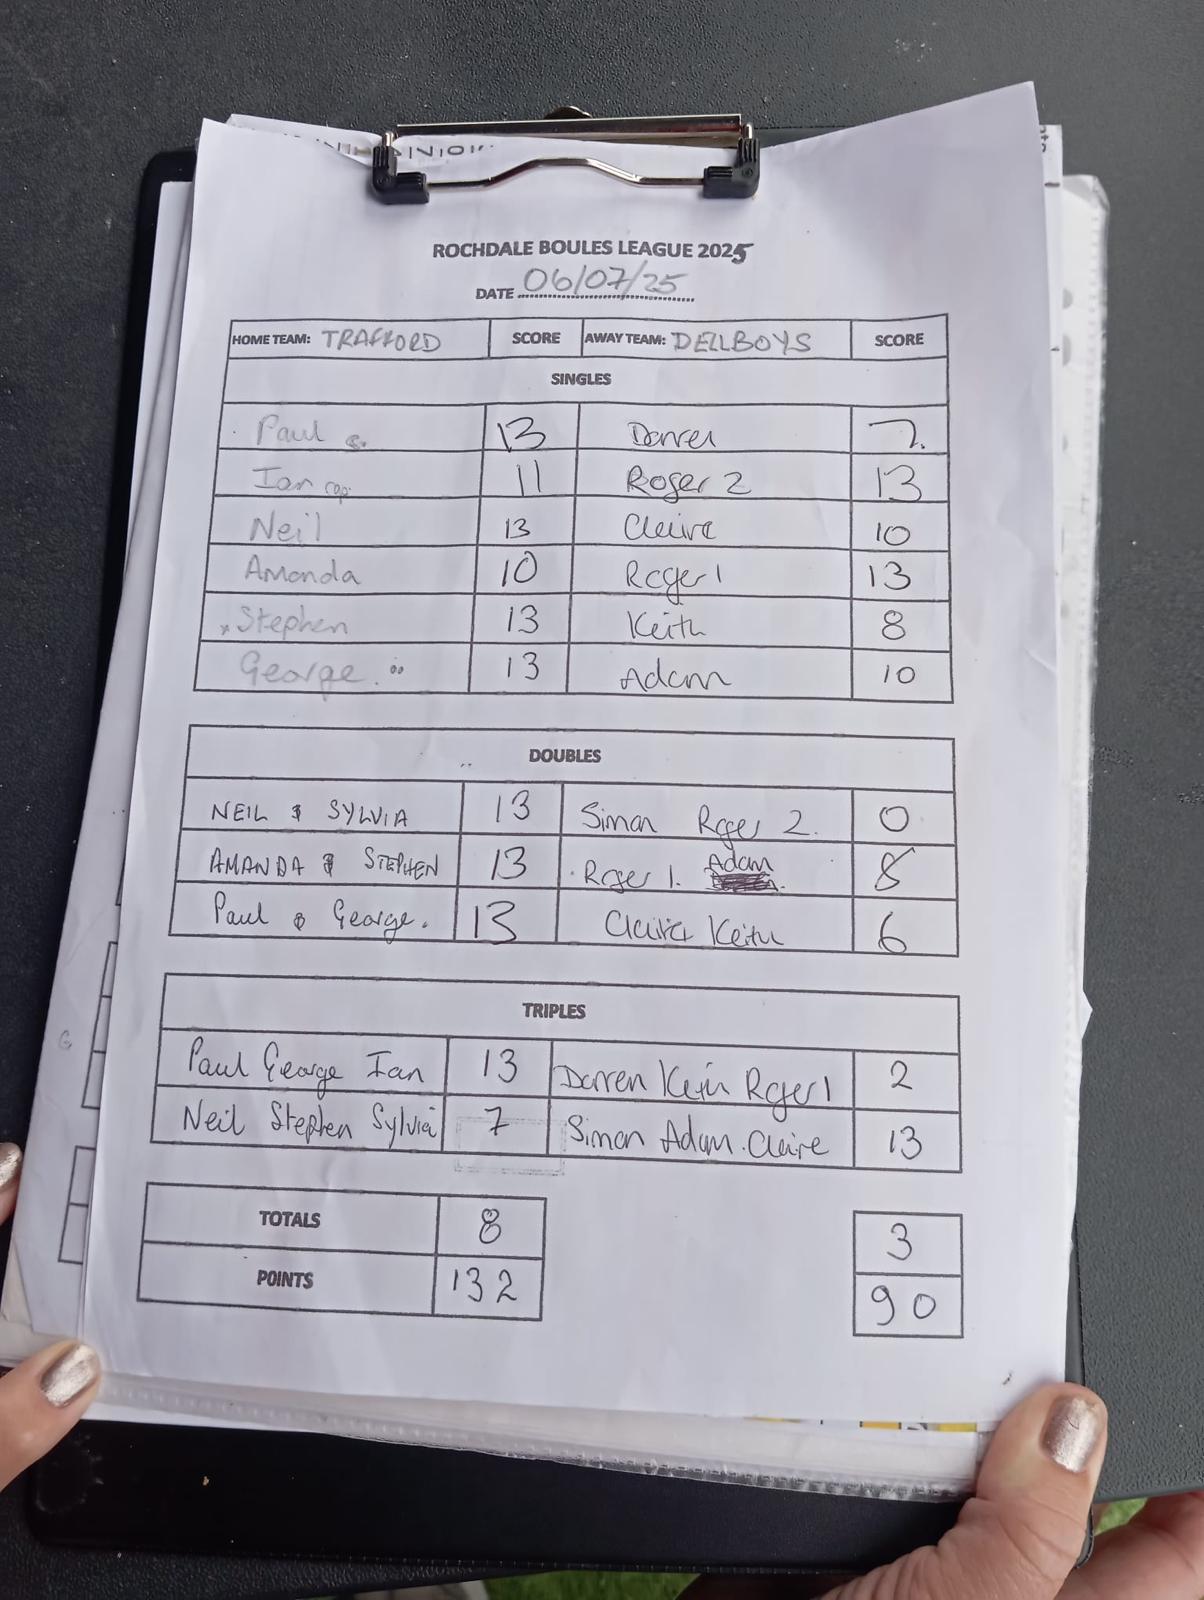 ROCHDALE BOULES LEAGUE 2025
DATE 06/07/25
HOME TEAM: TRAFFORD SCORE AWAY TEAM: DELLBOYS SCORE
SINGLES
Paul G. 13 Darrel 7.
Ian cap. 11 Roger 2 13
Neil 13 Claire 10
Amanda 10 Roger 1 13
Stephen 13 Keith 8
George 13 Adam 10
DOUBLES
NEIL & SYLVIA 13 Simon Roger 2. 0
AMANDA & STEPHEN 13 Roger 1. Adam 8
Paul & George. 13 Claire Keith 6
TRIPLES
Paul George Ian 13 Darren Keith Roger 1 2
Neil Stephen Sylvia 7 Simon Adam. Claire 13
TOTALS 8 3
POINTS 132 90